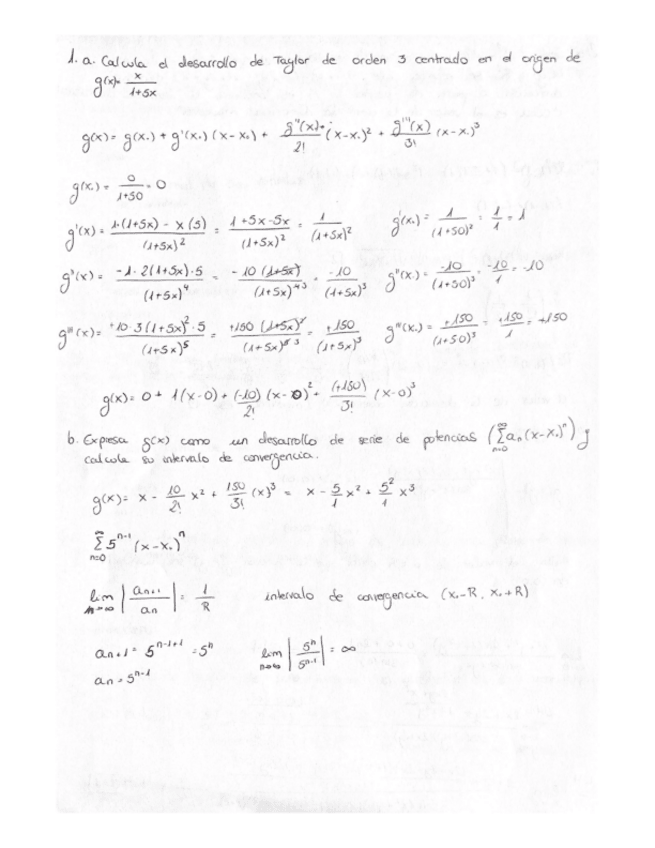 1. a. Calcula el desarrollo de Taylor de orden 3 centrado en el origen de
g(x)= x/(1+5x)
g(x)= g(x₀) + g'(x₀)(x-x₀) + g''(x)/2! (x-x₀)² + g'''(x)/3! (x-x₀)³
g(x₀) = 0/(1+50) = 0
g'(x) = (1·(1+5x) - x(5))/(1+5x)² = (1+5x-5x)/(1+5x)² = 1/(1+5x)² g'(x₀) = 1/(1+50)² = 1/1 = 1
g''(x) = (-1·2(1+5x)·5)/(1+5x)⁴ = -10(1+5x)/(1+5x)⁴³ = -10/(1+5x)³ g''(x₀) = -10/(1+50)³ = -10/1 = -10
g'''(x) = (+10·3(1+5x)²·5)/(1+5x)⁵ = +150(1+5x)²/(1+5x)⁵³ = +150/(1+5x)³ g'''(x₀) = +150/(1+50)³ = +150/1 = +150
g(x) = 0 + 1(x-0) + (-10)/2! (x-0)² + (+150)/3! (x-0)³
b. Expresa g(x) como un desarrollo de serie de potencias (∑ₙ₌₀^∞ aₙ(x-x₀)ⁿ) y
calcula su intervalo de convergencia.
g(x) = x - 10/2! x² + 150/3! (x)³ = x - 5/1 x² + 5²/1 x³
∑ₙ₌₀^∞ 5ⁿ⁻¹ (x-x₀)ⁿ
lim n→∞ |aₙ₊₁/aₙ| = 1/R intervalo de convergencia (x₀-R, x₀+R)
an+1 = 5ⁿ⁻¹⁺¹ = 5ⁿ lim n→∞ |5ⁿ/5ⁿ⁻¹| = ∞
an = 5ⁿ⁻¹